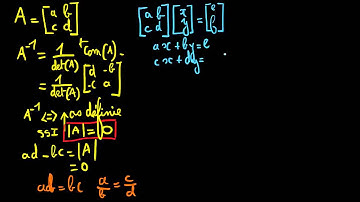 A = [a b
c d]
A⁻¹ = 1/det(A) ᵗcom(A)
= 1/det(A) [d -b
-c a]
A⁻¹ <=> pas définie
ssI |A| = 0
ad - bc = |A|
= 0
ad = bc a/b = c/d
[a b
c d] [x
y] = [e
f]
ax + by = e
cx + dy =